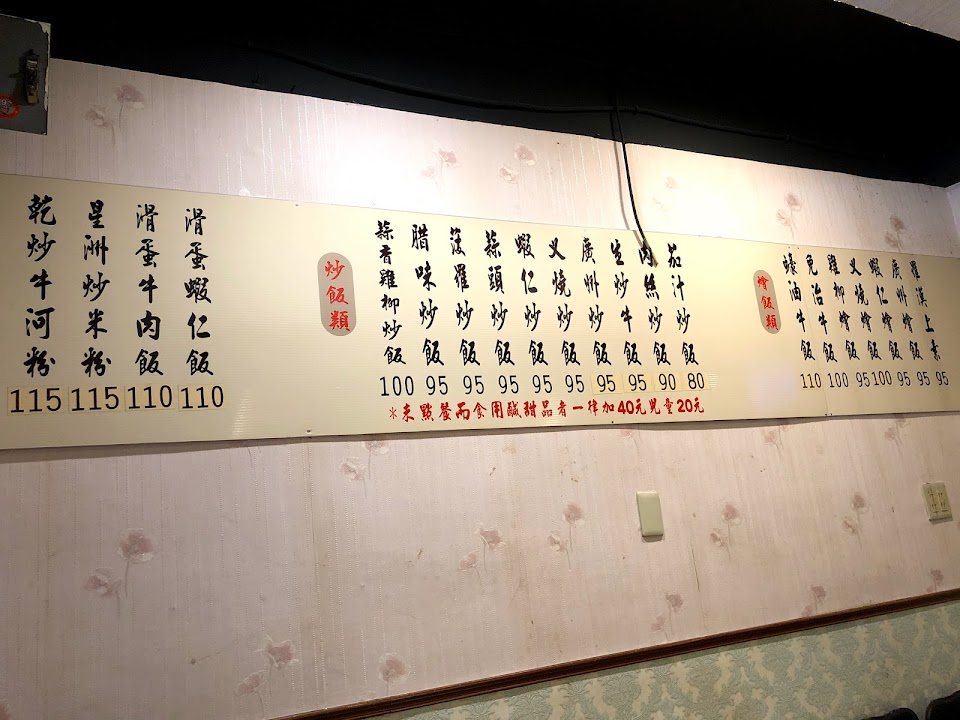 乾炒牛河粉 115
星洲炒米粉 115
滑蛋牛肉飯 110
滑蛋蝦仁飯 110
炒飯類
蒜香雞柳炒飯 100
臘味炒飯 95
菠羅炒飯 95
蒜頭炒飯 95
蝦仁炒飯 95
叉燒炒飯 95
廣州炒飯 95
生炒牛飯 95
肉絲炒飯 90
茄汁炒飯 80
＊未點餐而食用鹹甜品者一律加40元兒童20元
燴飯類
蠔油牛飯 110
免治牛飯 100
雞柳燴飯 95
叉燒燴飯 100
蝦仁燴飯 95
廣州燴飯 95
羅漢上素 95